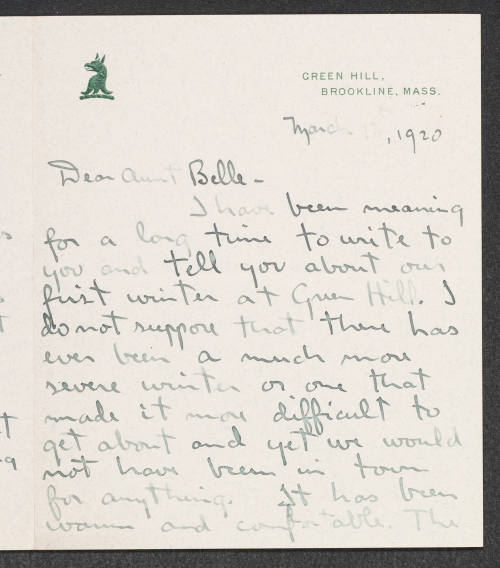 GREEN HILL,
BROOKLINE, MASS.
March 12, 1920
Dear Aunt Belle -
I have been meaning
for a long time to write to
you and tell you about our
first winter at Green Hill. I
do not suppose that there has
ever been a much more
severe winter or one that
made it more difficult to
get about and yet we would
not have been in town
for anything. It has been
warm and comfortable. The